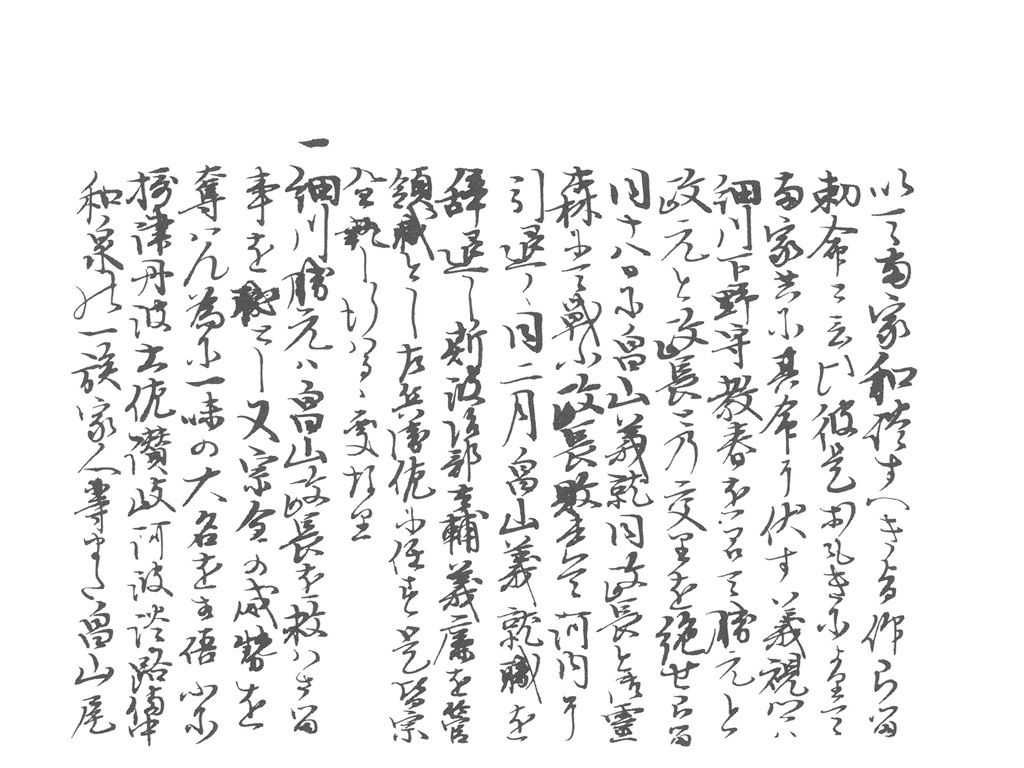 以て両家和談すへきよし仰らる
勅命と云ひ彼是
両家共に其命に伏す義視ハ
細川下野守教春を召て勝元と
政元と政長との交りを絶せらる
同十八日に畠山義就同政長と御霊
森にて戦ふ政長敗走して河内に
引退く同二月畠山義就職を
辞退し斯波治部大輔義廉を管
領職とし左兵衛佐に任す是皆宗
全執し行ける
一細川勝元ハ畠山政長を救ハさる
事をし又宗全の威勢を
奪ハん為に一味の大名を
摂津丹波土佐讃岐阿波淡路備中
和泉の一族家人等また畠山尾